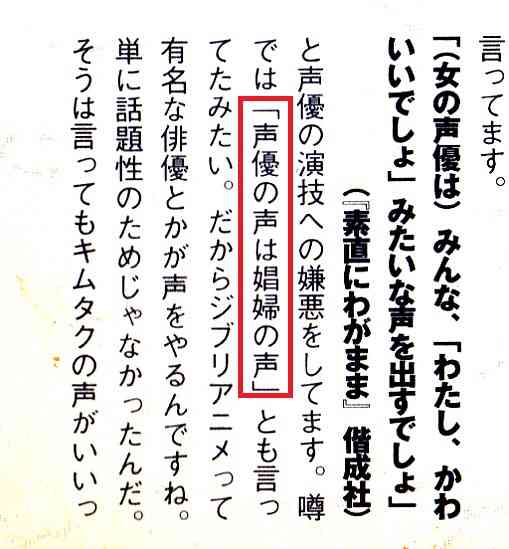 言ってます。
「（女の声優は）みんな、「わたし、かわ
いいでしょ」みたいな声を出すでしょ」
（『素直にわがまま』偕成社）
と声優の演技への嫌悪をしてます。噂
では「声優の声は娼婦の声」とも言っ
てたみたい。だからジブリアニメって
有名な俳優とかが声をやるんですね。
単に話題性のためじゃなかったんだ。
そうは言ってもキムタクの声がいいっ